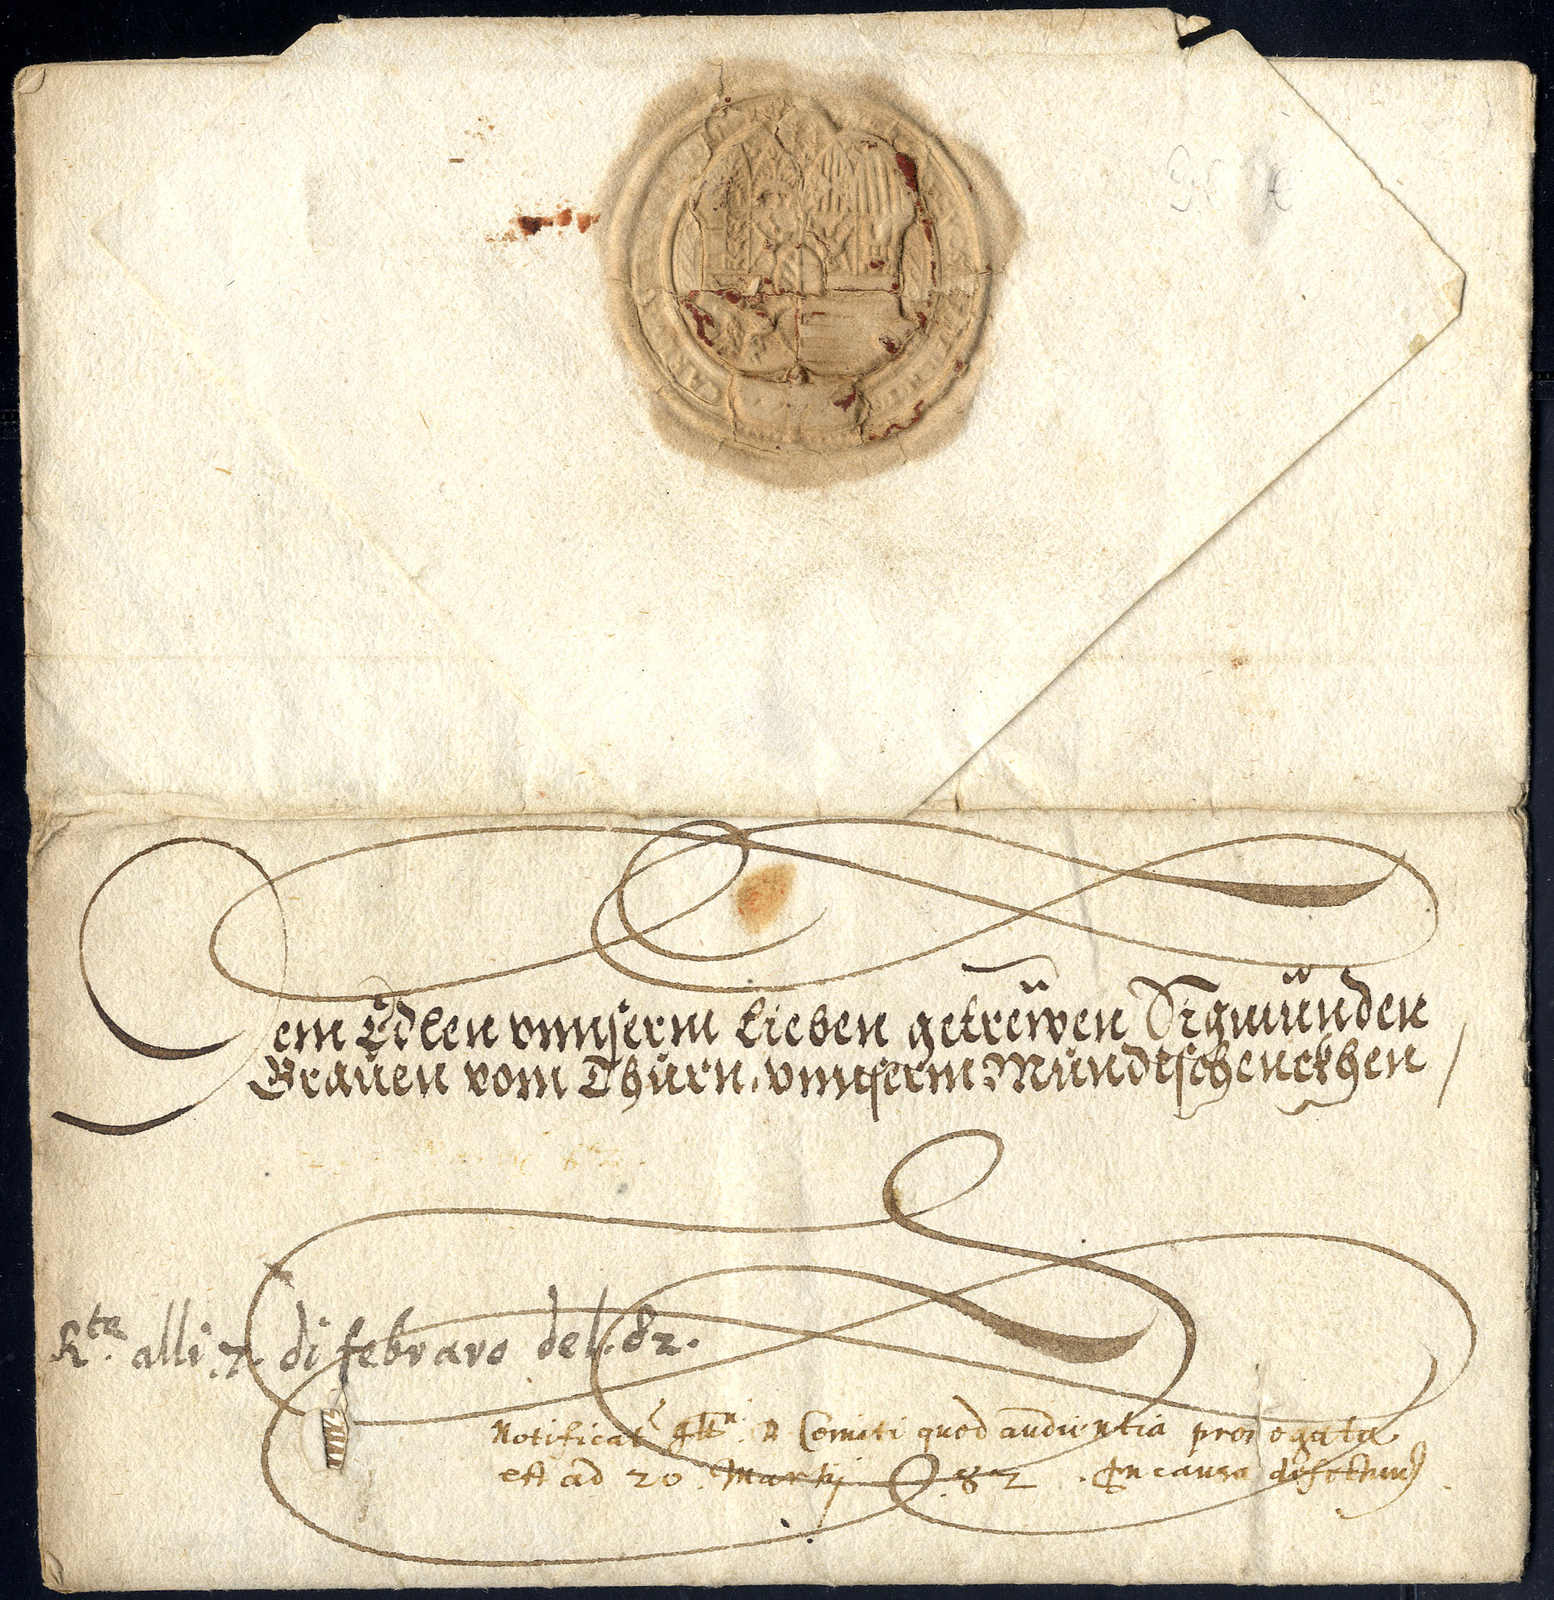 Dem Edlen vnnserm lieben getreẅen Sigmünden
Grauen vom Thurn, vnnserm Mundtschenckhen
Rta. alli .7. di febraro del .82.
Notificat Comiti quod audientia prorogata
est ad 20 Martij 82 . In causa defectuu .